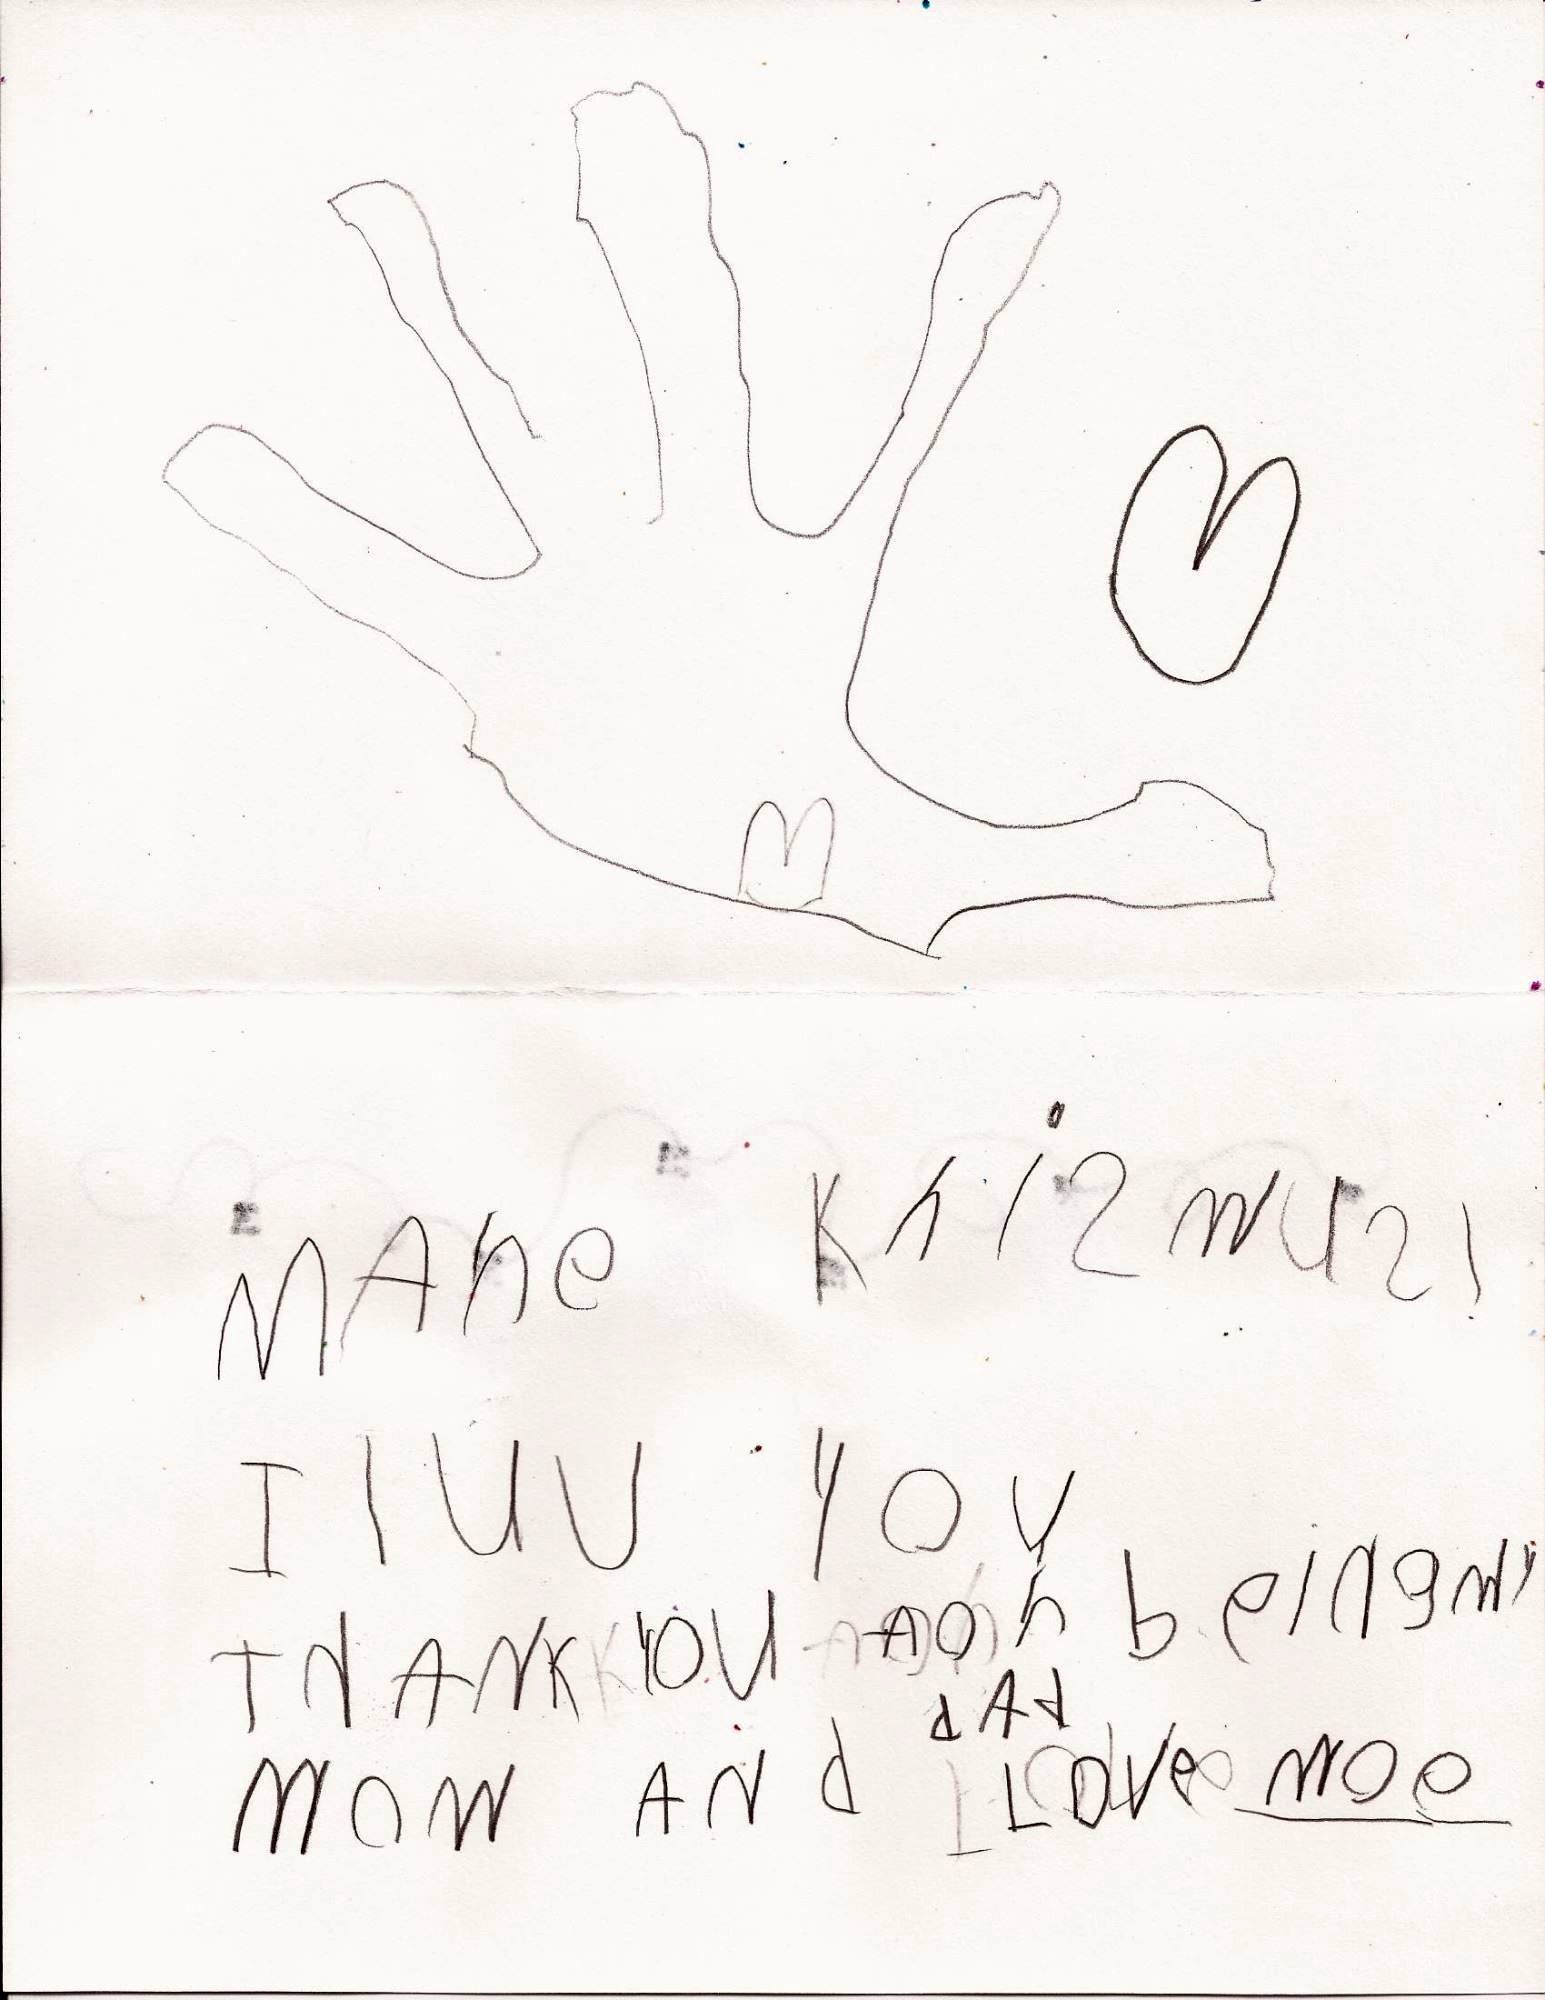 MAre Krizmuz!
I lUv YOU
THANK YOU fOr being my
MOM ANd dAd
LOVe moe